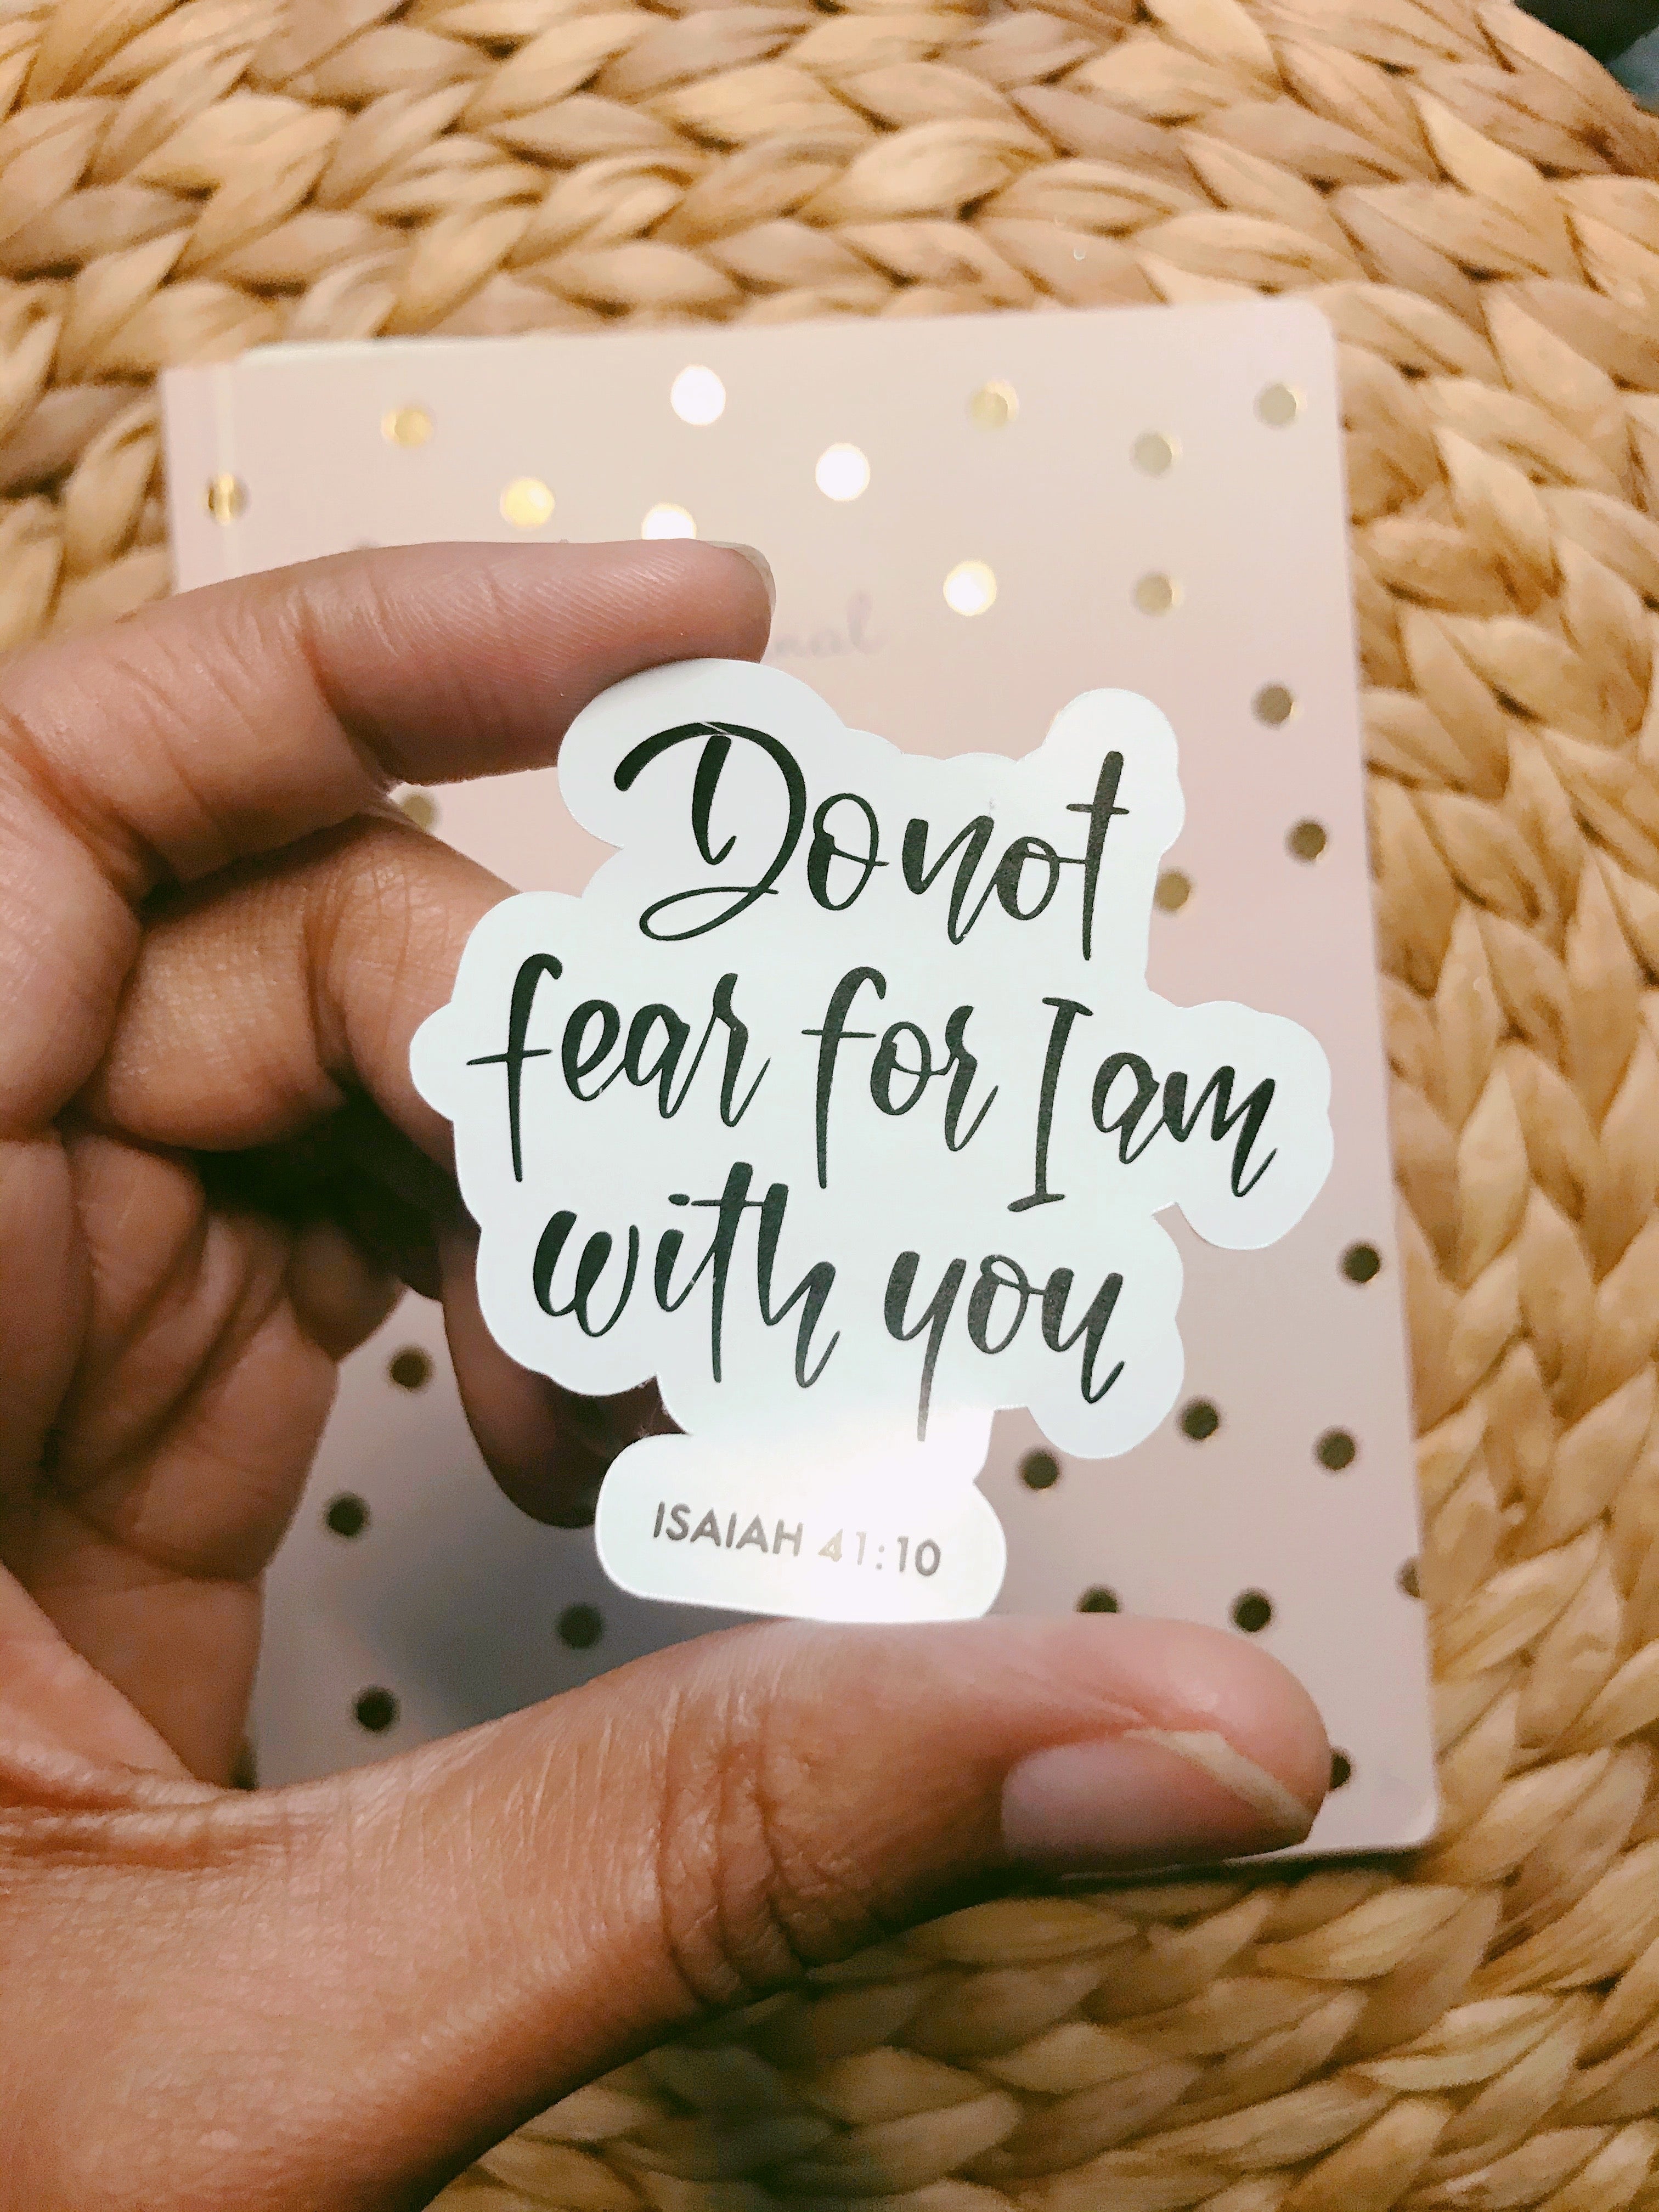 Do not
fear for I am
with you
ISAIAH 41:10